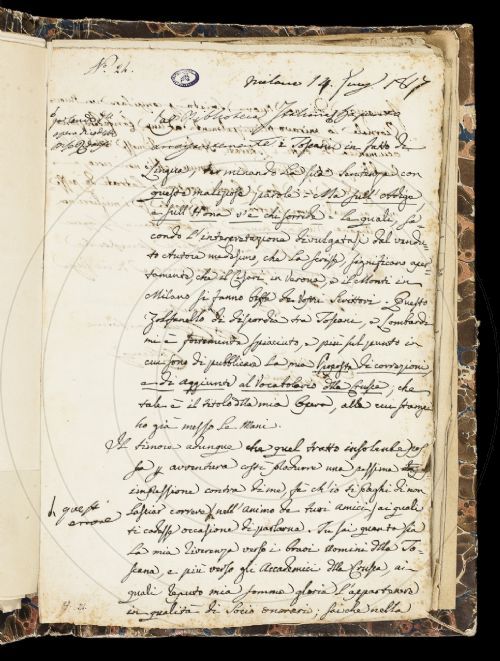 N.° 24.
Milano 14. 1817
La Biblioteca Italiana
i Toscani in fatto di
Lingua terminando la sua sentenza con
queste maliziose parole = Ma sull'Adige
e sull'Olona v'è chi sorride = le quali, se
condo l'interpretazione divulgatasi dal
Autore medesimo, che le scrisse, significano aper-
tamente, che il Cesari in Verona, e il Monti in
Milano si fanno beffe de' Vostri Scrittori. Questo
di discordia tra Toscani, e Lombardi
mi è fortemente spiaciuto, e più sul punto in
cui sono di pubblicare la mia Proposta di correzioni
ed aggiunte al Vocabolario della Crusca, che
tale è il titolo della mia Opera, alla cui stampa
ho già messo le mani.
Il timore adunque che quel tratto insolente pos
sa p avventura costì produrre una pessima
impressione contra di me, fa ch'io ti preghi di non
lasciar correre nell'animo de' tuoi amici, ai quali
questo
errore
ti cadesse occasione di parlarne. Tu sai quanta sia
la mia riverenza verso i bravi uomini della To-
scana, e più verso gli Accademici della Crusca, ai
quali reputo mia somma gloria l'appartenere
in qualità di Socio onorario; sai che nella